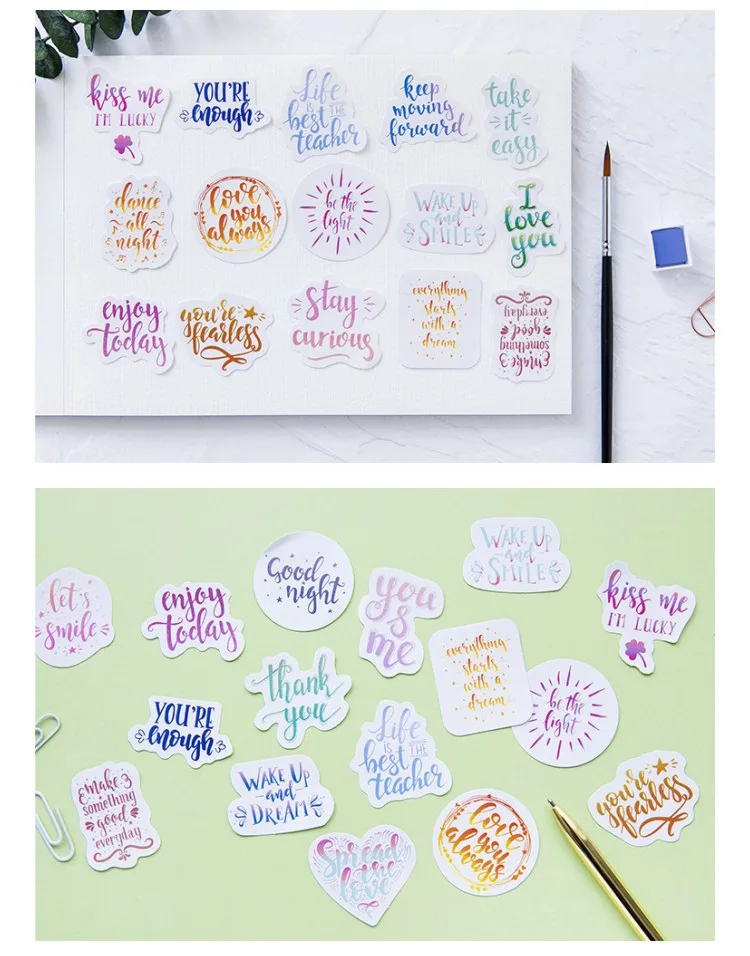 kiss me
I'M LUCKY
YOU'RE
enough
Life
IS THE
best
teacher
keep
moving
forward
take
it
easy
dance
all
night
love
you
always
be the
light
WAKE UP
and
SMILE
I
love
you
enjoy
today
you're
fearless
stay
curious
everything
starts
with a
dream
make
something
good
everyday
let's
smile
enjoy
today
Good
night
you
&
me
WAKE UP
and
SMILE
kiss me
I'M LUCKY
thank
you
everything
starts
with a
dream
be the
light
YOU'RE
enough
Life
IS THE
best
teacher
make
something
good
everyday
WAKE UP
and
DREAM
love
you
always
you're
fearless
Spread
the
love